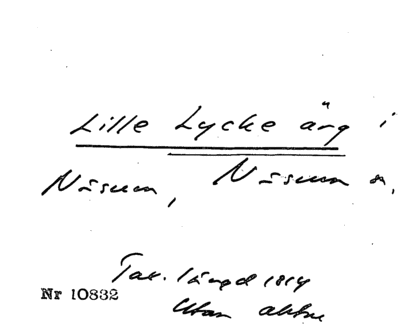 Lille Lycke äng i
Näsum, Näsum sn.
Tax. längd 1814
Nr 10832
utan